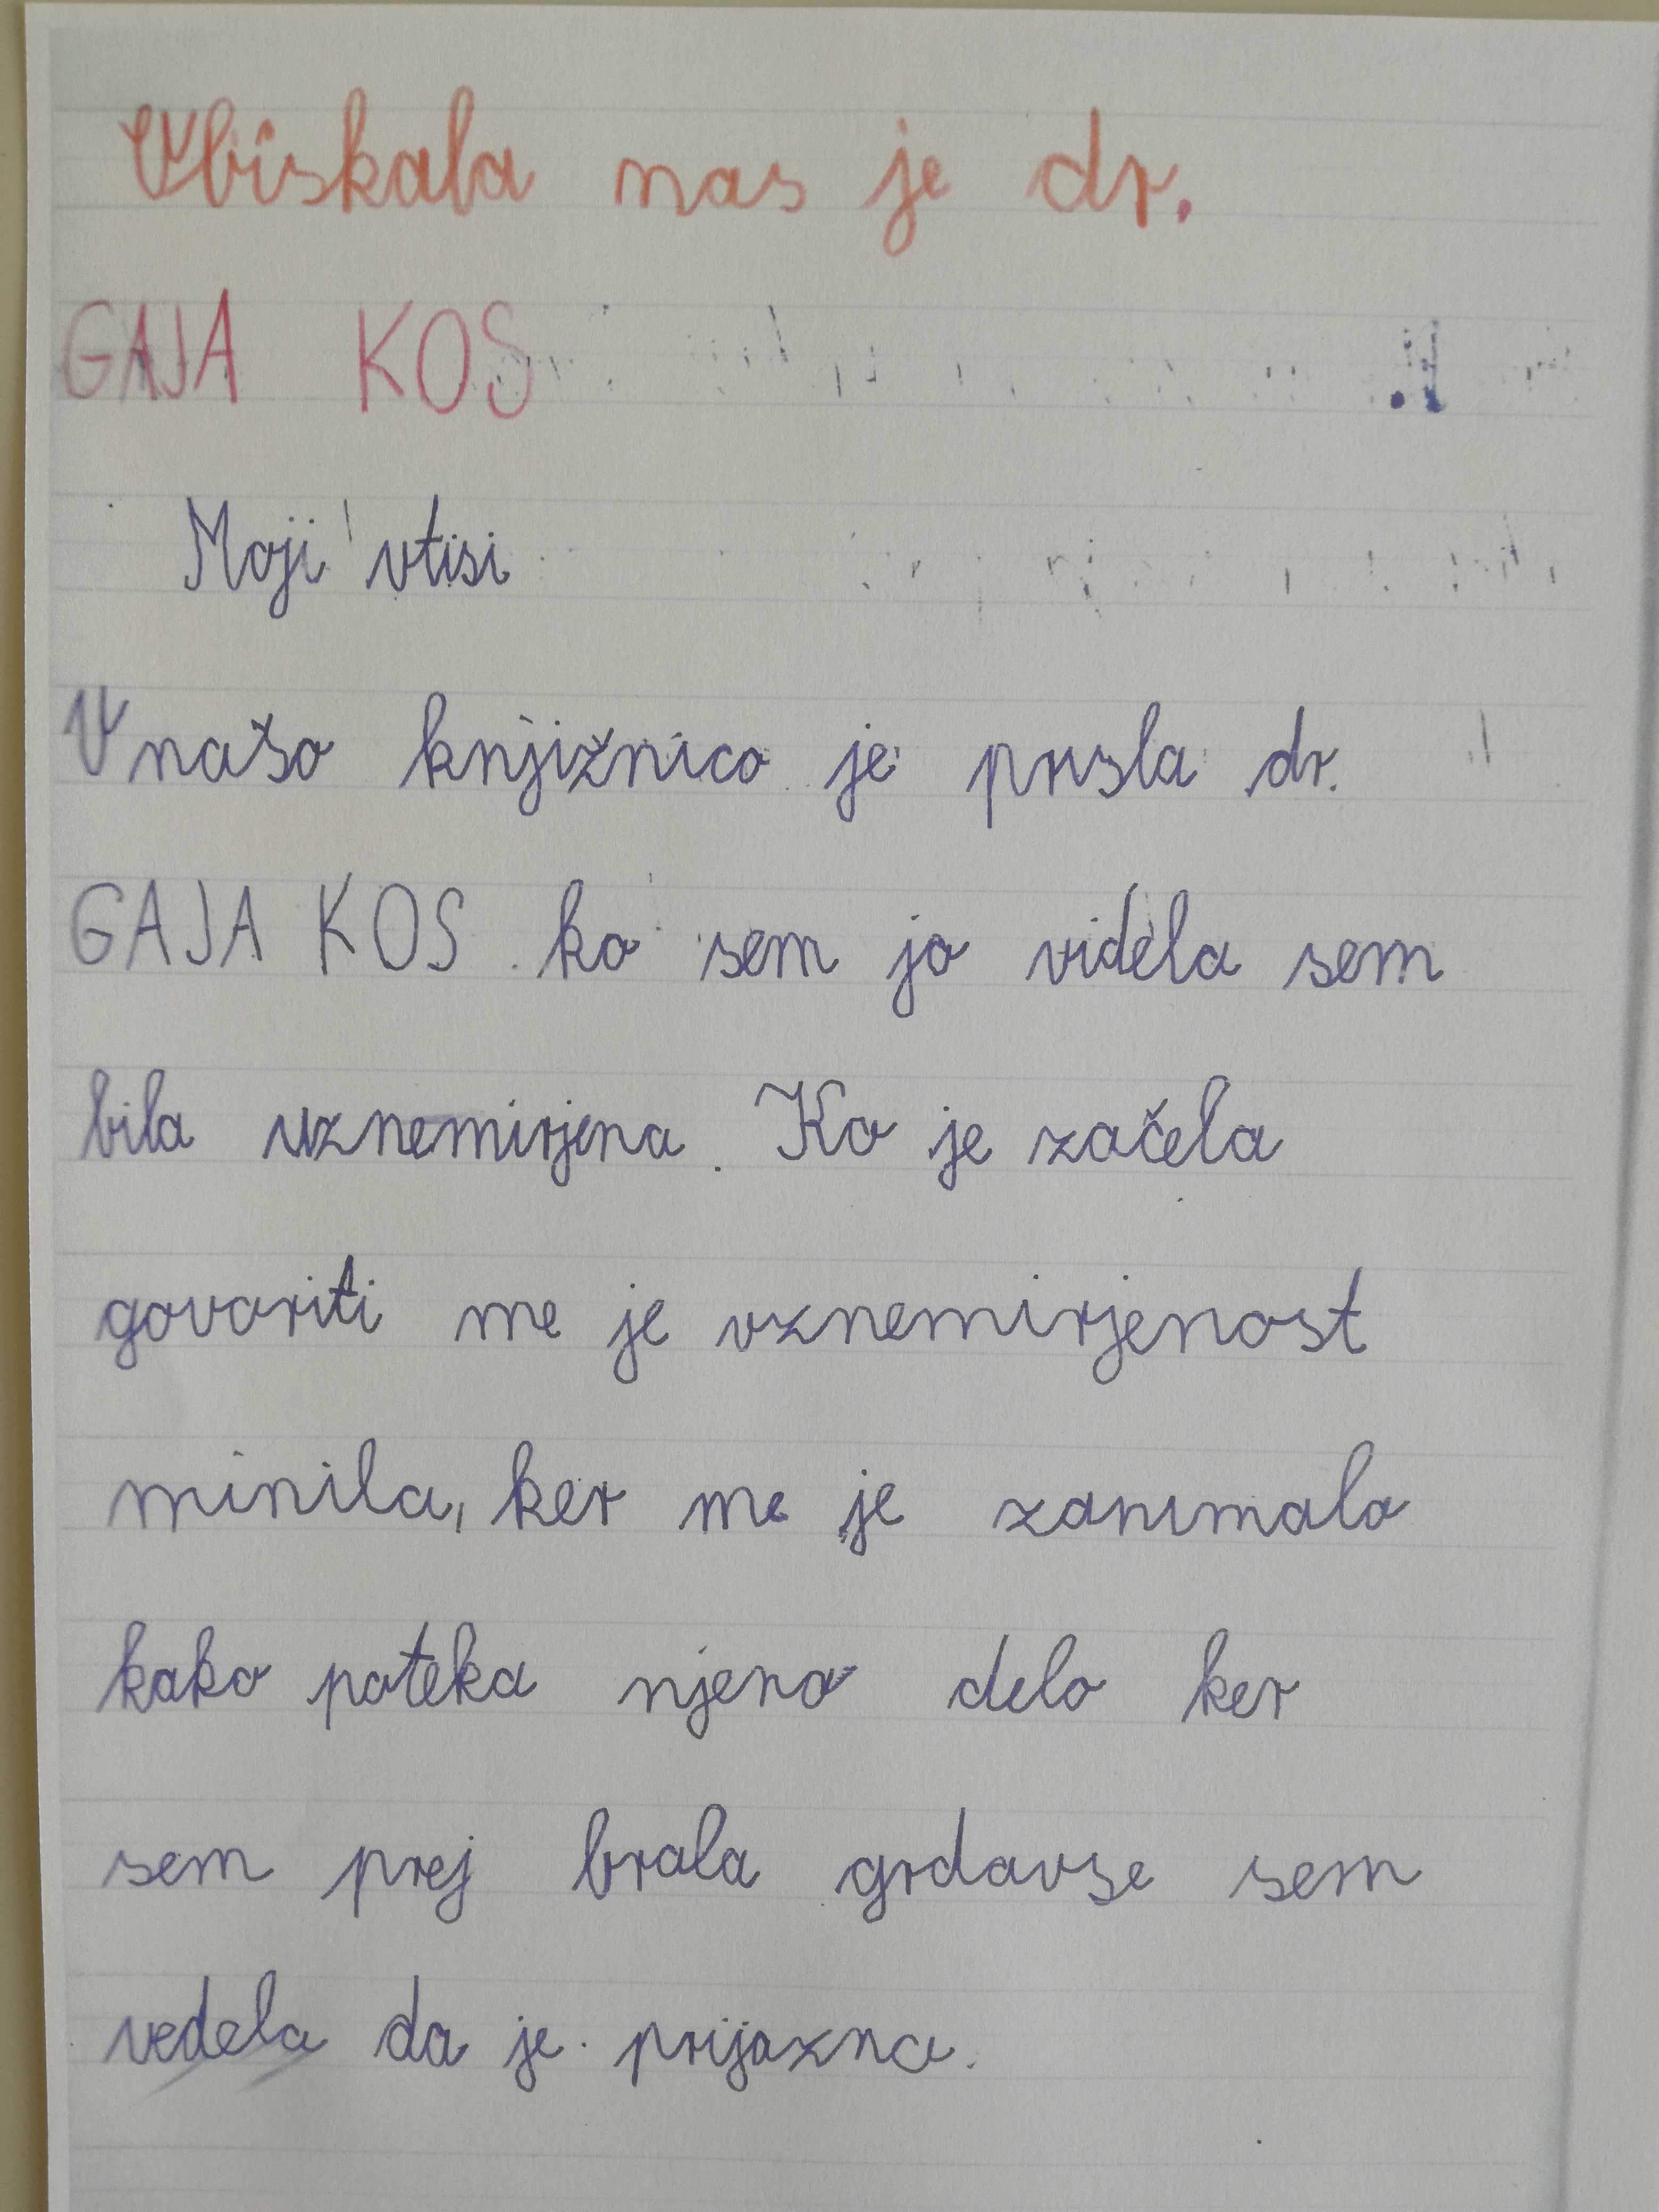 Obiskala nas je dr.
GAJA KOS
Moji vtisi
V našo knjižnico je prisla dr.
GAJA KOS ko sem jo videla sem
bila uznemirjena. Ko je začela
govoriti me je vznemirjenost
minila, ker me je zanimalo
kako poteka njeno delo ker
sem prej brala grdavse sem
vedela da je prijazna.